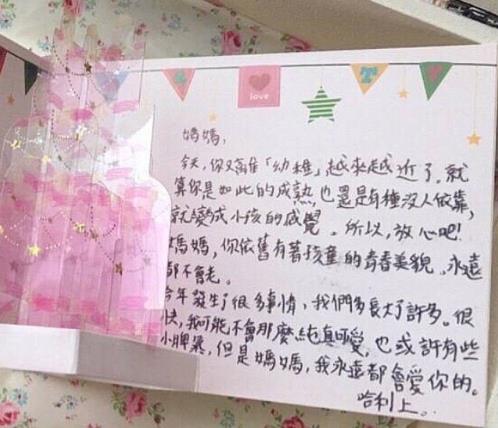 love
T
媽媽,
今天,你又離「幼稚」越來越近了。就
算你是如此的成熟也還是有種沒人依靠,
就變成小孩的感覺。所以,放心吧!
媽媽,你依舊有著孩童的青春美貌,永遠
都不會老。
今年發生了很多事情,我們都長大了許多。很
快,我可能不會那麼純真可愛,也或許有些
小脾氣,但是媽媽,我永遠都會愛你的。
哈利上。